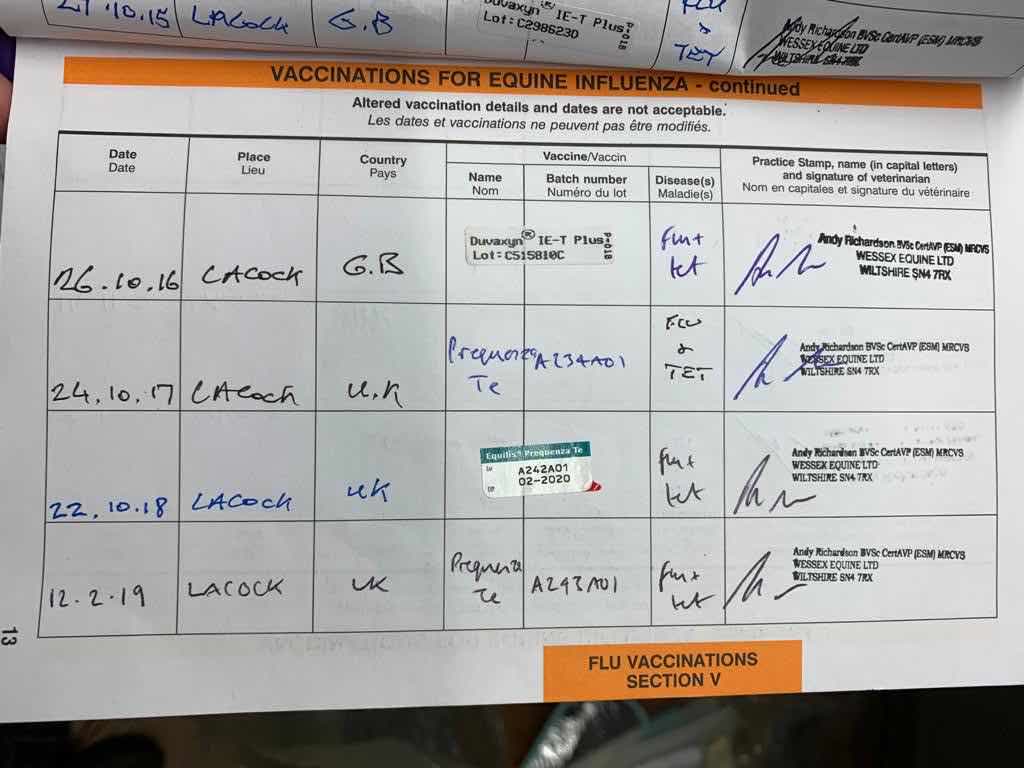 27.10.15 LACOCK G.B Duvaxyn® IE-T Plus P-018 FLU
Lot: C298623D &
TET
Andy Richardson BVSc CertAVP (ESM) MRCVS
WESSEX EQUINE LTD
WILTSHIRE SN4 7RX
VACCINATIONS FOR EQUINE INFLUENZA - continued
Altered vaccination details and dates are not acceptable.
Les dates et vaccinations ne peuvent pas être modifiés.
Date
Date
Place
Lieu
Country
Pays
Vaccine/Vaccin
Name
Nom
Batch number
Numéro du lot
Disease(s)
Maladie(s)
Practice Stamp, name (in capital letters)
and signature of veterinarian
Nom en capitales et signature du vétérinaire
26.10.16 LACOCK G.B
Duvaxyn® IE-T Plus P-018
Lot: C515810C
Flu+
tet
Andy Richardson BVSc CertAVP (ESM) MRCVS
WESSEX EQUINE LTD
WILTSHIRE SN4 7RX
24.10.17 LACOCK U.K
Prequenza A234A01
Te
FLU
&
TET
Andy Richardson BVSc CertAVP (ESM) MRCVS
WESSEX EQUINE LTD
WILTSHIRE SN4 7RX
22.10.18 LACOCK UK
Equilis® Prequenza Te
Lot A242A01
EXP 02-2020
Flu+
tet
Andy Richardson BVSc CertAVP (ESM) MRCVS
WESSEX EQUINE LTD
WILTSHIRE SN4 7RX
12.2.19 LACOCK UK
Prequenza A243A01
Te
Flu+
tet
Andy Richardson BVSc CertAVP (ESM) MRCVS
WESSEX EQUINE LTD
WILTSHIRE SN4 7RX
13
FLU VACCINATIONS
SECTION V